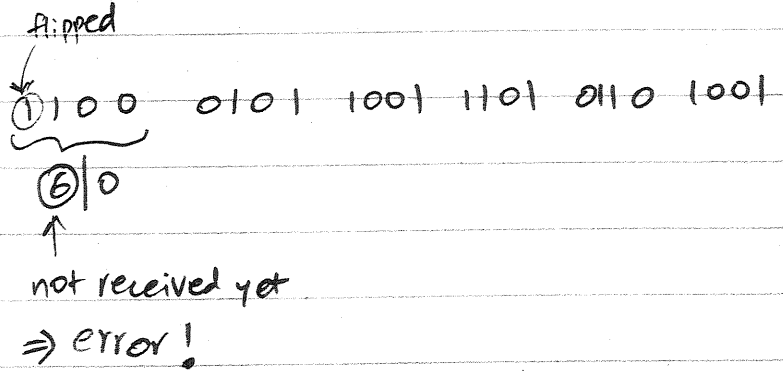 flipped
1100 0101 1001 1101 0110 1001
6|0
not received yet
⇒ error!